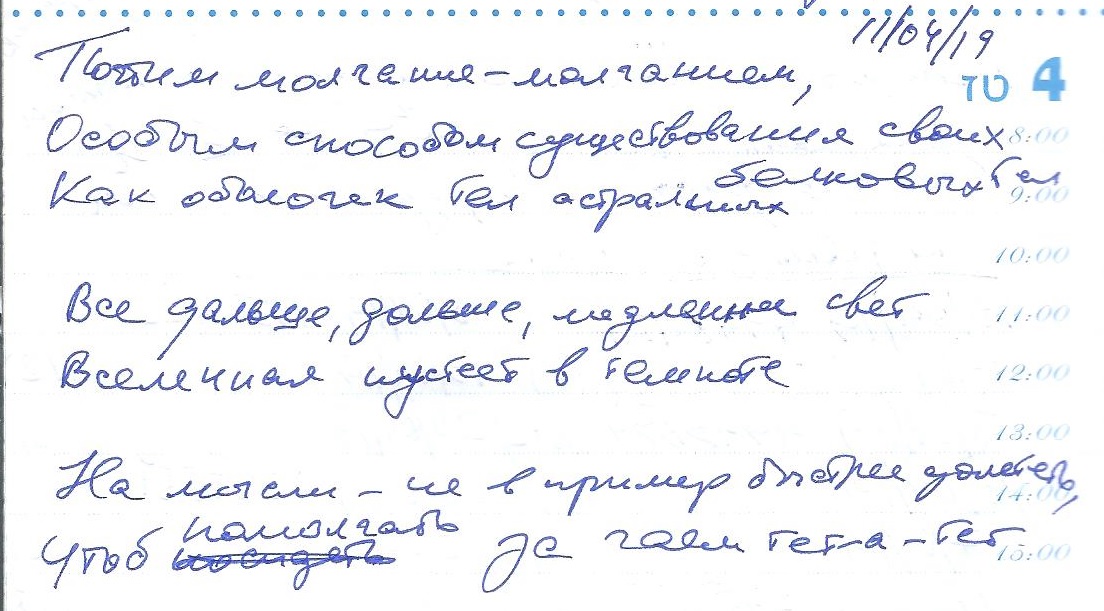 11/04/19
טז 4
Потом молчание – молчанием,
Особым способом существования своих
белковых тел
Как оболочек тел астральных
Все дальше, дольше, медленнее свет
Вселенная пустеет в темноте
На мысли – не в пример быстрее долететь,
помолчать
Чтоб посидеть за чаем тет-а-тет
8:00
9:00
10:00
11:00
12:00
13:00
14:00
15:00